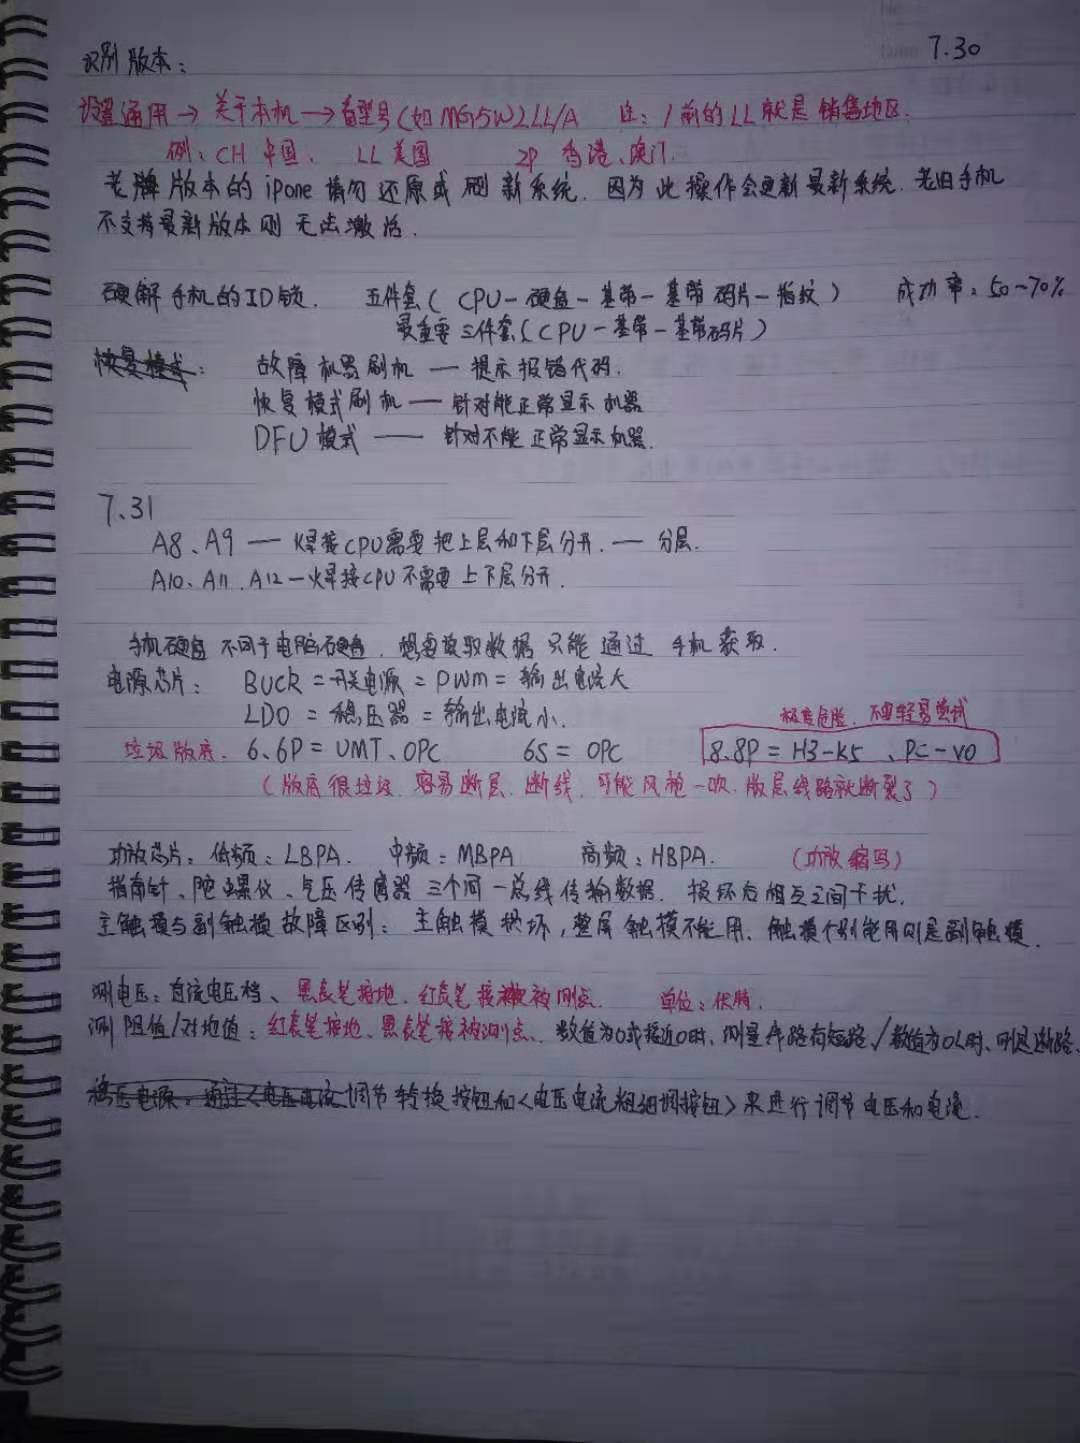 7.30
识别版本：
设置通用→关于本机→看型号(如MG5W2LL/A 注：/前的LL就是销售地区.
例：CH 中国、 LL美国 ZP 香港、澳门.
老牌版本的ipone请勿还原或刷新系统. 因为此操作会更新最新系统. 老旧手机
不支持最新版本则无法激活.
硬解手机的ID锁. 五件套(CPU-硬盘-基带-基带码片-指纹) 成功率：50-70%
最重要三件套(CPU-基带-基带码片)
恢复模式： 故障机器刷机 — 提示报错代码.
恢复模式刷机 — 针对能正常显示机器
DFU模式 — 针对不能正常显示机器.
7.31
A8、A9 — 焊接CPU需要把上层和下层分开. — 分层.
A10、A11.A12-焊接CPU不需要上下层分开.
手机硬盘不同于电脑硬盘. 想要获取数据只能通过手机获取.
电源芯片： BUCK=开关电源=PWM=输出电流大
LDO=稳压器=输出电流小.
极度危险. 不要轻易尝试
垃圾版底. 6.6P=UMT、OPC 6S=OPC 8.8P=H3-K5、PC-V0
(版底很垃圾. 容易断层. 断线. 可能风枪一吹. 版层线路就断裂了)
功放芯片：低频：LBPA. 中频：MBPA 高频：HBPA. (功放缩写)
指南针、陀螺仪、气压传感器 三个同一总线传输数据. 损坏后相互之间干扰.
主触摸与副触摸故障区别：主触摸损坏，整屏触摸不能用、触摸个别能用则是副触摸.
测电压：直流电压档、黑表笔接地. 红表笔接被测点. 单位：伏特.
测阻值/对地值：红表笔接地、黑表笔接被测点. 数值为0或接近0时、测量线路有短路√数值为OL时、则是断路.
稳压电源. 通过<电压电流调节转换按钮和<电压电流粗细调按钮>来进行调节电压和电流.